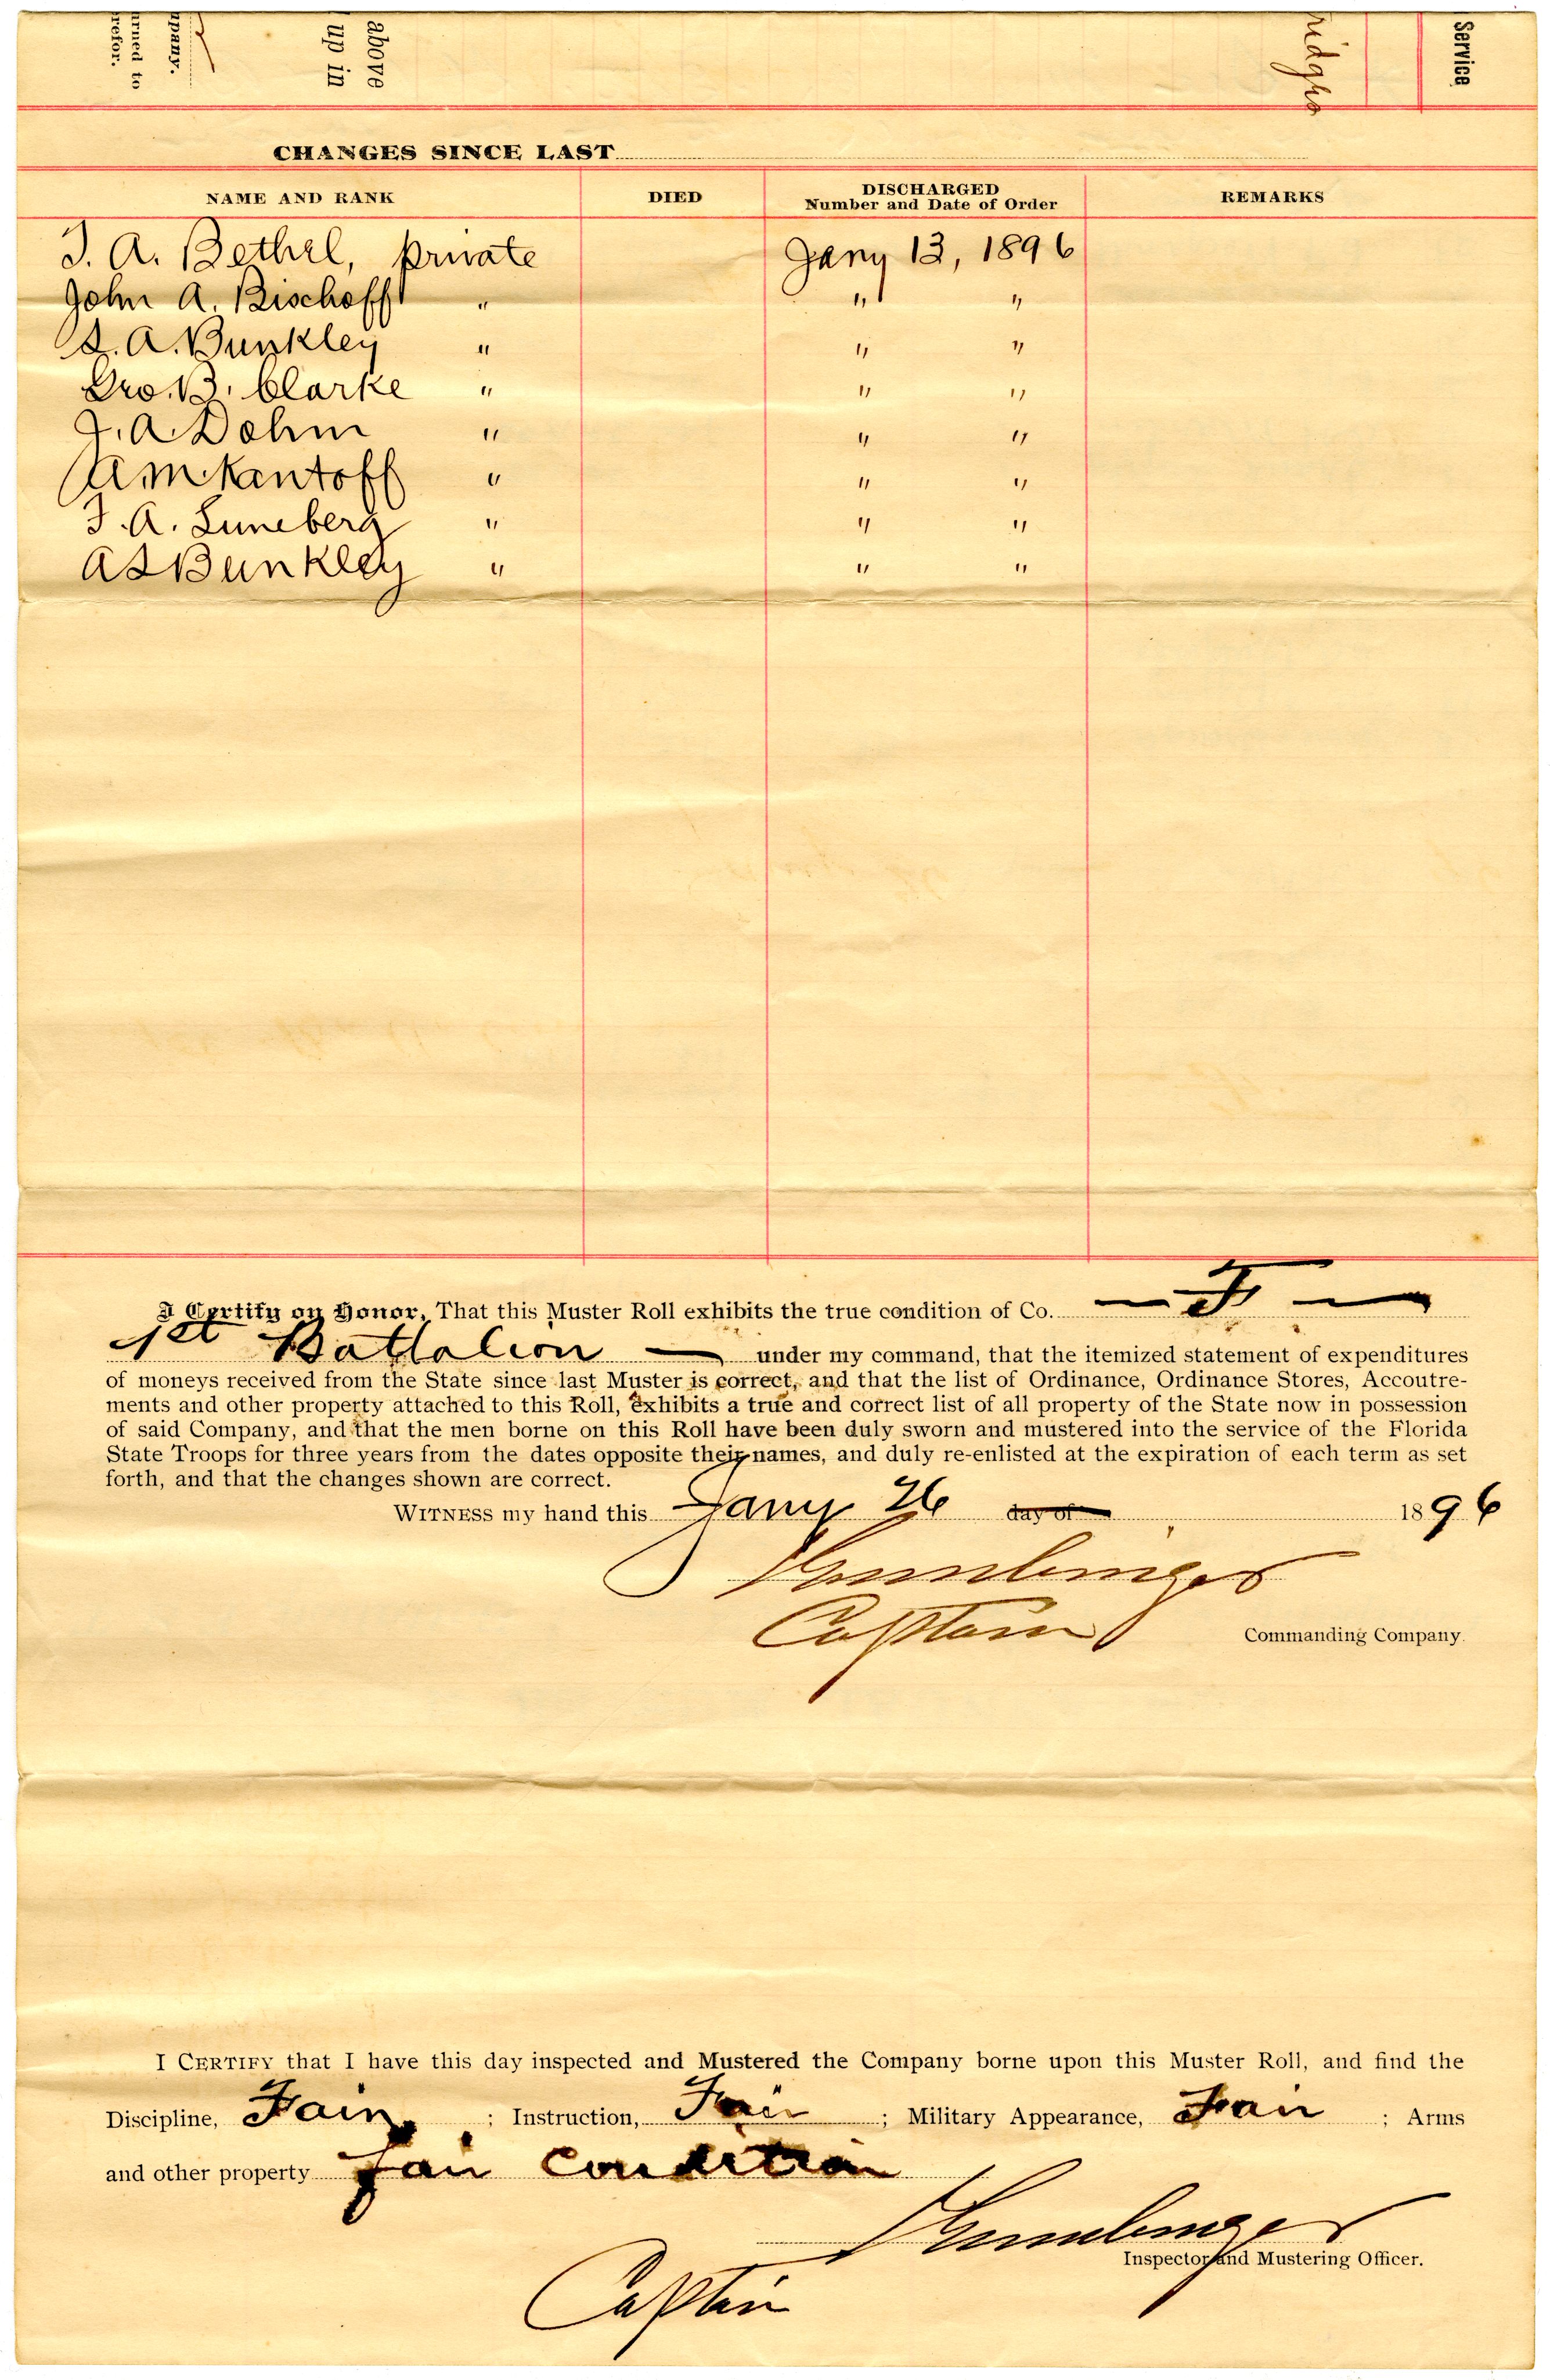 above
up in
pany.
urned to
refor.
Service
CHANGES SINCE LAST
NAME AND RANK DIED DISCHARGED Number and Date of Order REMARKS
T. A. Bethel, private Jany 13, 1896
John A. Bischoff " " "
S. A. Bunkley " " "
Geo. B. Clarke " " "
J. A. Dohm " " "
A M Kantoff " " "
F. A. Luneberg " " "
A S Bunkley " " "
I Certify on Honor, That this Muster Roll exhibits the true condition of Co. — F —
1st Battalion — under my command, that the itemized statement of expenditures
of moneys received from the State since last Muster is correct, and that the list of Ordinance, Ordinance Stores, Accoutre-
ments and other property attached to this Roll, exhibits a true and correct list of all property of the State now in possession
of said Company, and that the men borne on this Roll have been duly sworn and mustered into the service of the Florida
State Troops for three years from the dates opposite their names, and duly re-enlisted at the expiration of each term as set
forth, and that the changes shown are correct.
WITNESS my hand this Jany 26 day of 1896
Captain Commanding Company.
I CERTIFY that I have this day inspected and Mustered the Company borne upon this Muster Roll, and find the
Discipline, Fair ; Instruction, Fair ; Military Appearance, Fair ; Arms
and other property fair condition
Inspector and Mustering Officer.
Captain